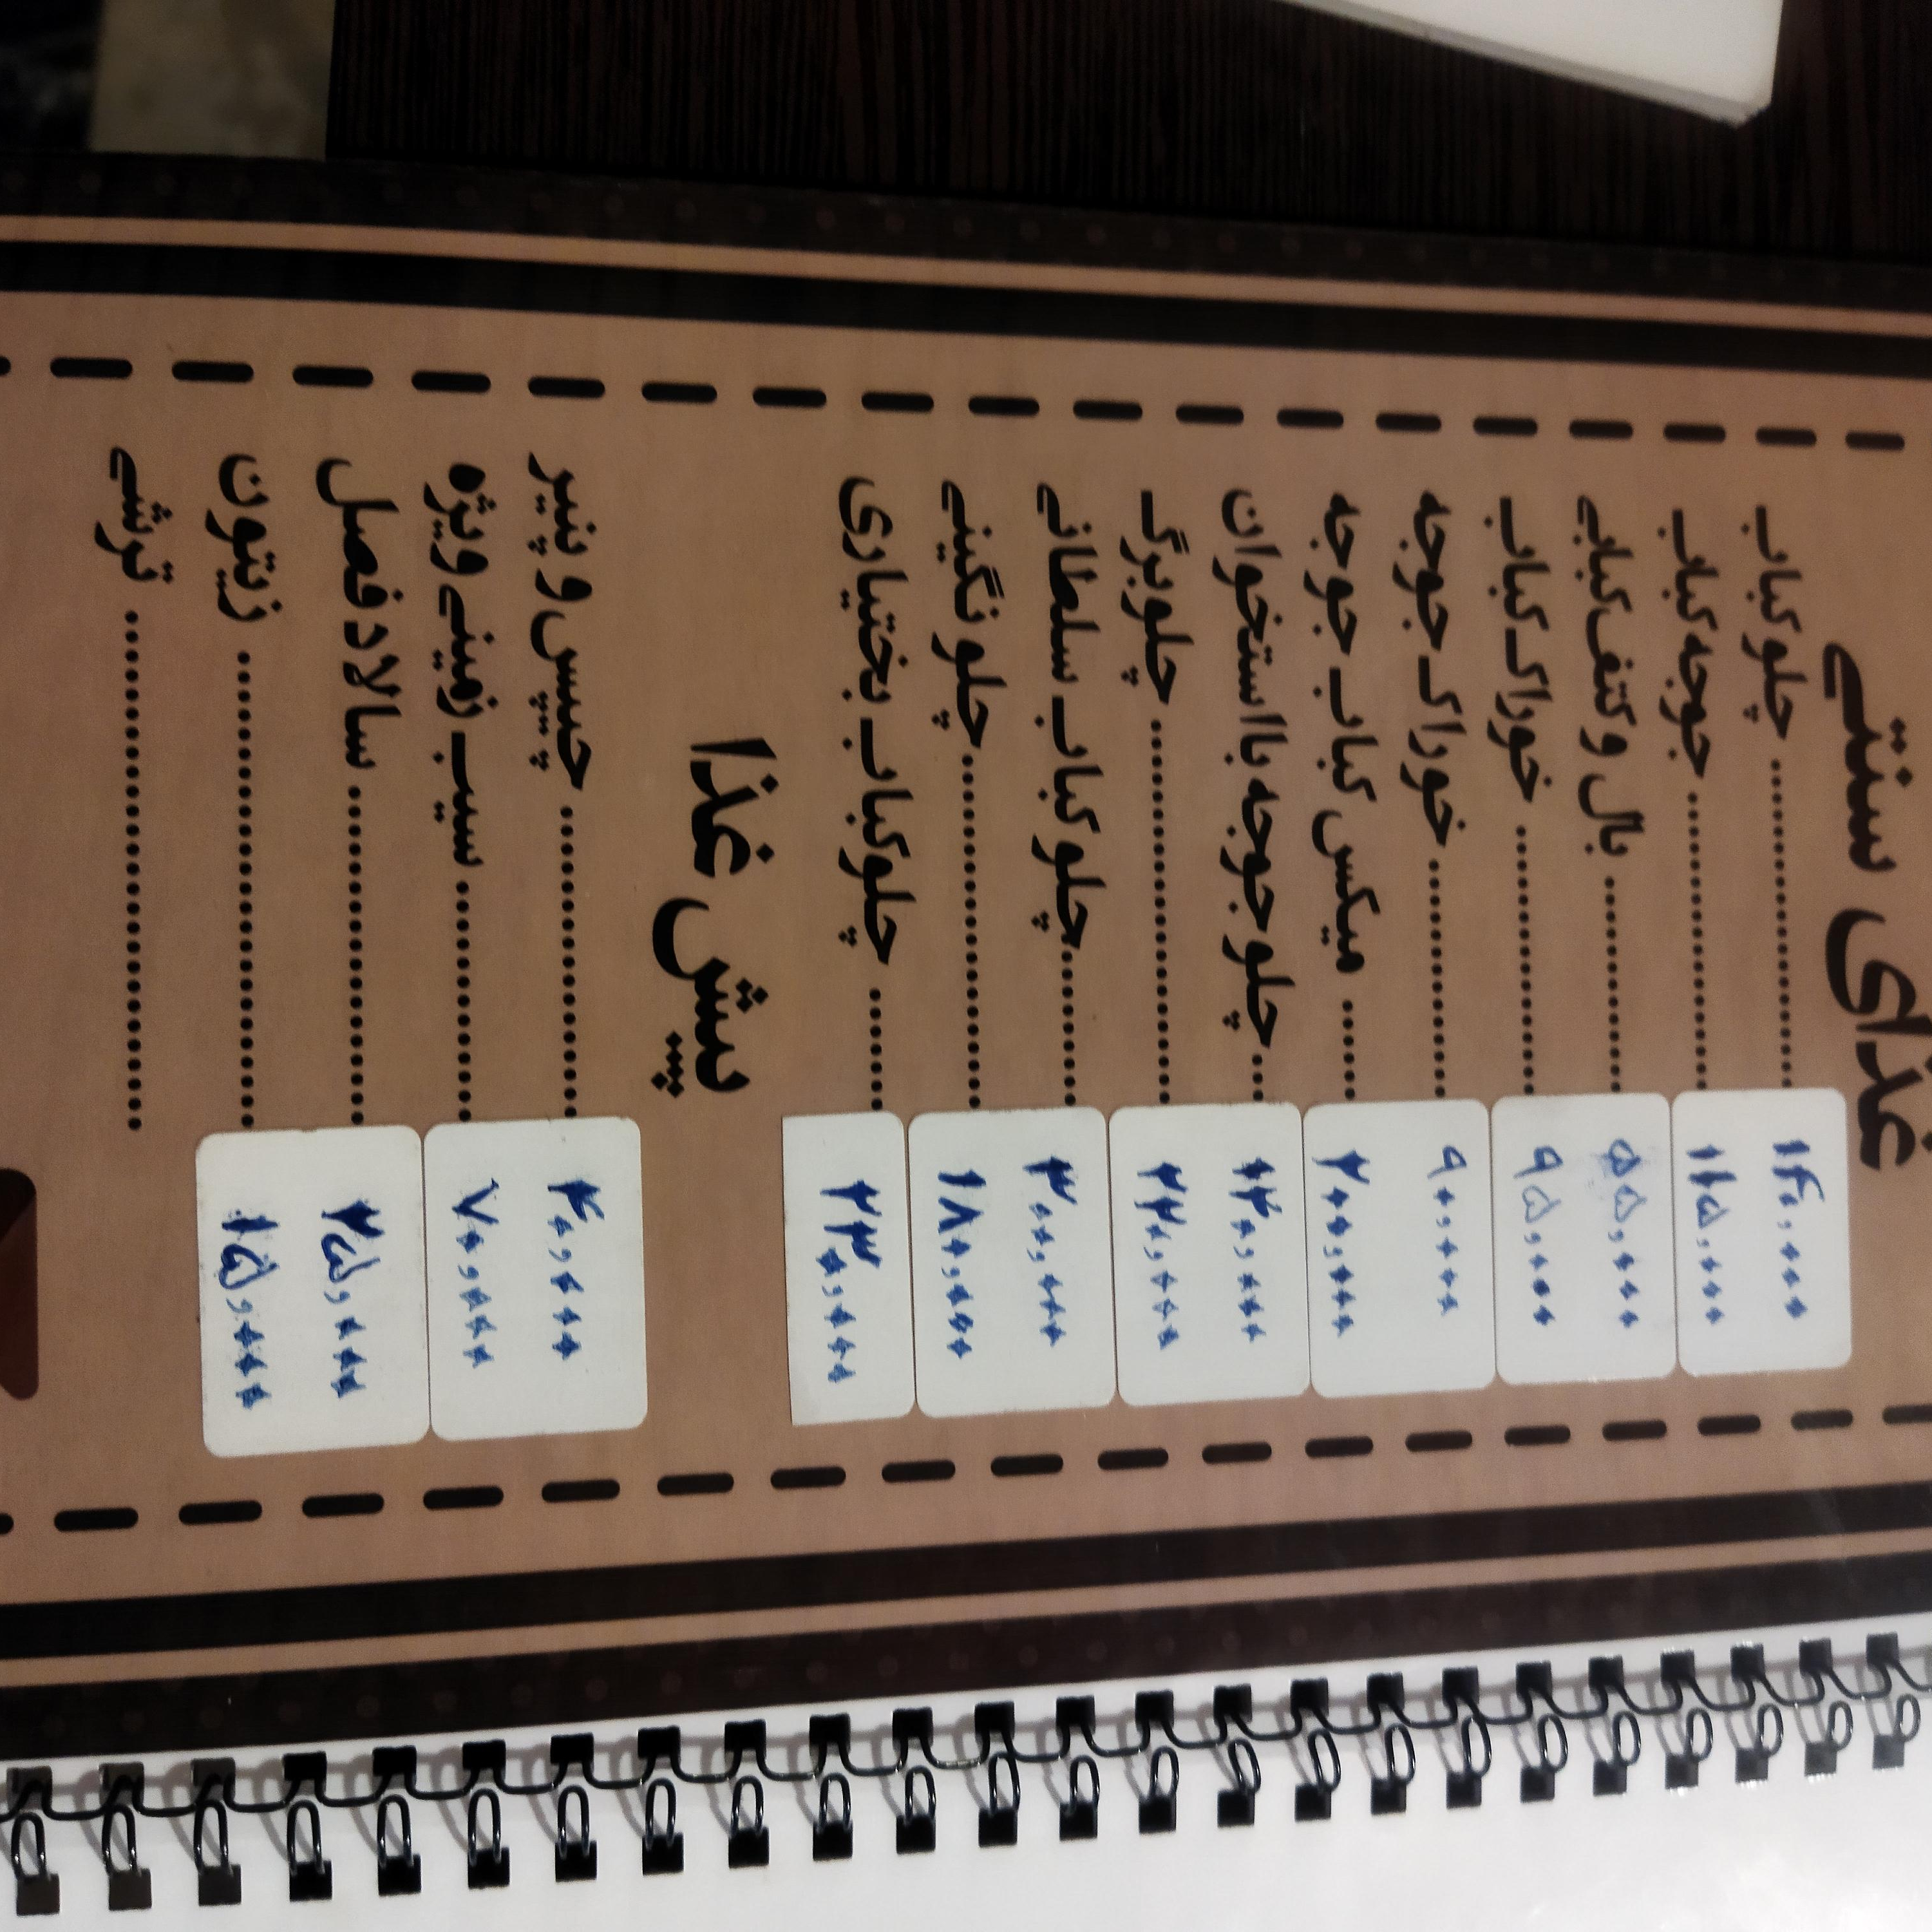 غذای سنتی
چلو کباب ۱۴۰,۰۰۰
جوجه کباب ۱۱۵,۰۰۰
بال و کتف کبابی ۵۵,۰۰۰
خوراک کباب ۹۵,۰۰۰
خوراک جوجه ۹۰,۰۰۰
میکس کباب جوجه ۲۰۰,۰۰۰
چلو جوجه با استخوان ۱۳۰,۰۰۰
چلو برگ ۲۲۰,۰۰۰
چلو کباب سلطانی ۳۰۰,۰۰۰
چلو نگینی ۱۸۰,۰۰۰
چلو کباب بختیاری ۲۳۰,۰۰۰
پیش غذا
چیپس و پنیر ۴۰,۰۰۰
سیب زمینی ویژه ۷۰,۰۰۰
سالاد فصل ۲۵,۰۰۰
زیتون ۱۵,۰۰۰
ترشی